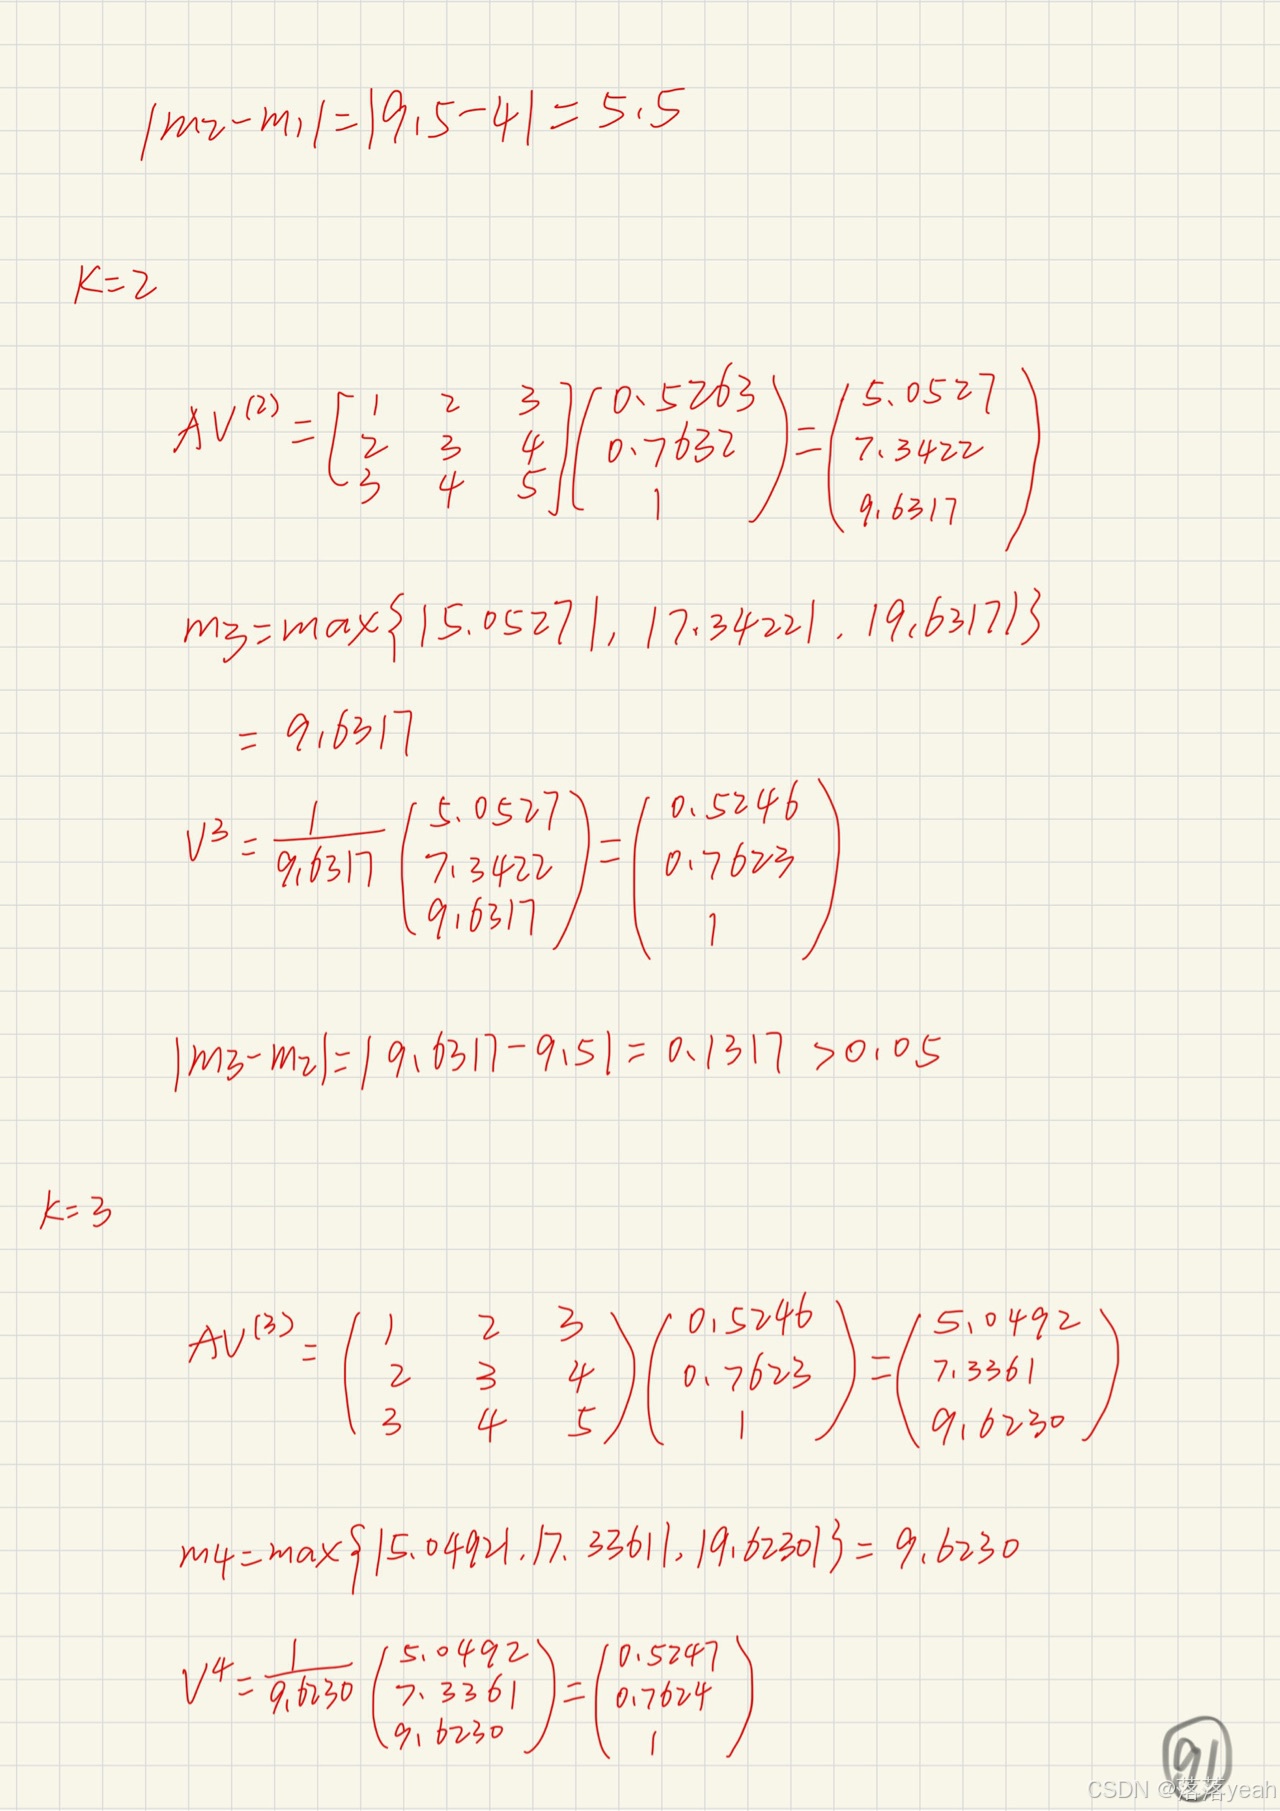 |m2-m1|=|9.5-4|=5.5
K=2
AV^(2)=[1 2 3; 2 3 4; 3 4 5](0.5263; 0.7632; 1)=(5.0527; 7.3422; 9.6317)
m3=max{|5.0527|, |7.3422|, |9.6317|}
= 9.6317
V^3=1/9.6317(5.0527; 7.3422; 9.6317)=(0.5246; 0.7623; 1)
|m3-m2|=|9.6317-9.5|=0.1317 >0.05
K=3
AV^(3)=(1 2 3; 2 3 4; 3 4 5)(0.5246; 0.7623; 1)=(5.0492; 7.3361; 9.6230)
m4=max{|5.0492|,|7.3361|,|9.6230|}=9.6230
V^4=1/9.6230(5.0492; 7.3361; 9.6230)=(0.5247; 0.7624; 1)
91
CSDN @落落yeah